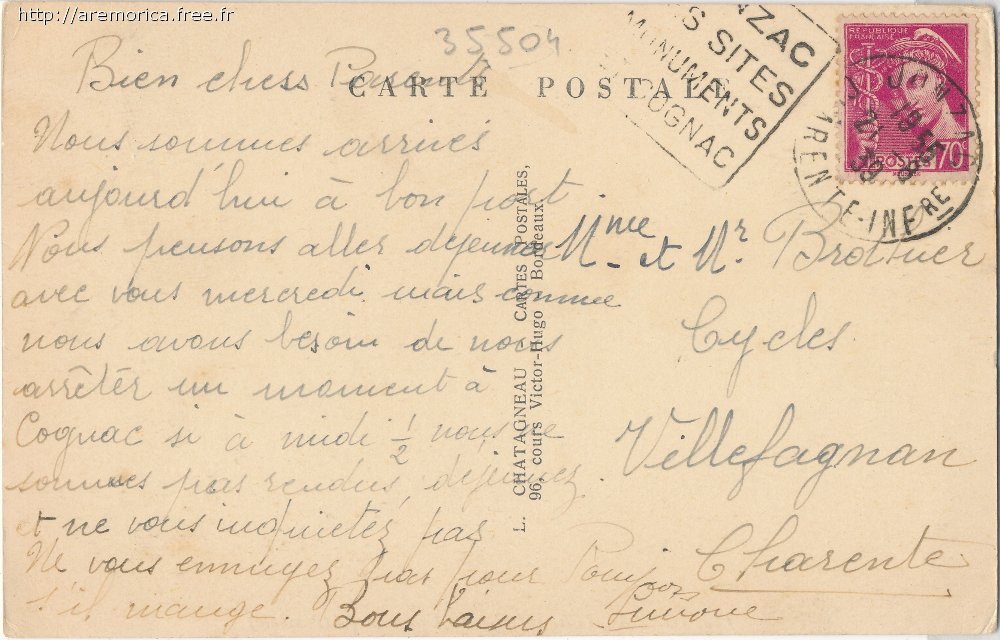 http://aremorica.free.fr
35504
CARTE POSTALE
Bien chers Parents
Nous sommes arrivés
aujourd'hui à bon port.
Nous pensons aller déjeuner
avec vous mercredi mais comme
nous avons besoin de nous
arrêter un moment à
Cognac si à midi 1/2 nous ne
sommes pas rendus, déjeunez
et ne vous inquietez pas
Ne vous ennuyez pas pour
s'il mange. Bons baisers
Simone
L. CHATAGNEAU CARTES POSTALES,
96, cours Victor-Hugo Bordeaux.
ZAC
S SITES
MONUMENTS
COGNAC
REPUBLIQUE
FRANÇAISE
POSTES
70c
JONZAC
1955
21-8
39
ARENTE-INFRE
Mme et Mr
Cycles
Villefagnan
Charente